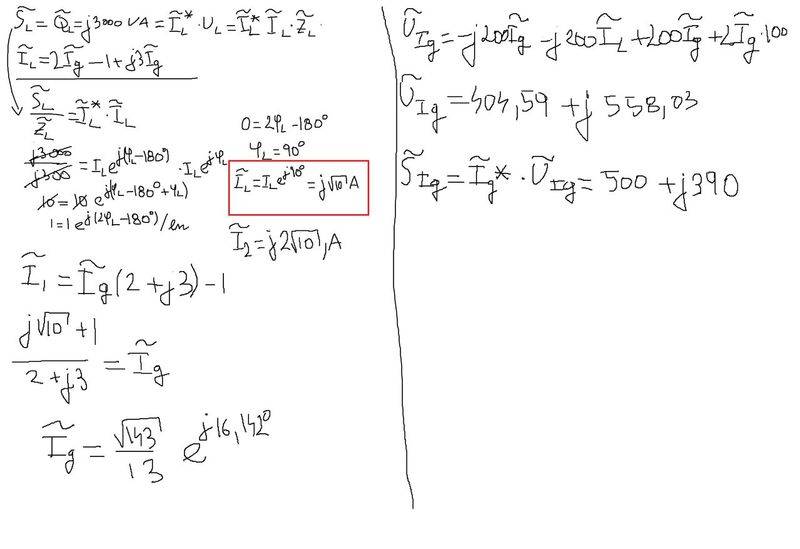 S̃_L = Q̃_L = j3000 VA = Ĩ_L* · U_L = Ĩ_L* Ĩ_L · Z̃_L.
Ĩ_L = 2Ĩg - 1 + j3Ĩg
S̃_L / Z̃_L = Ĩ_L* · Ĩ_L
j3000 / j300 = I_L e^j(φ_L - 180°) · I_L e^jφ_L
10 = 10 e^j(φ_L - 180° + φ_L)
1 = 1 e^j(2φ_L - 180°) / ln
0 = 2φ_L - 180°
φ_L = 90°
Ĩ_L = I_L e^j90° = j√10 A
Ĩ_2 = j2√10, A
Ĩ_1 = Ĩg (2 + j3) - 1
(j√10 + 1) / (2 + j3) = Ĩg
Ĩg = √143 / 13 e^j16,142°
Ũ_Ig = -j200Ĩg - j200Ĩ_L + 200Ĩg + 2Ĩg · 100
Ũ_Ig = 404,59 + j 558,03
S̃_Ig = Ĩg* · Ũ_Ig = 500 + j390